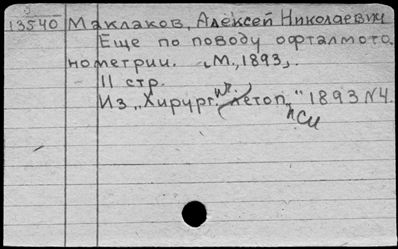 13540 Маклаков, Алексей Николаевич
Еще по поводу офталмото
нометрии. [М., 1893].
11 стр.
Из „Хирург. летоп." 1893 N4.